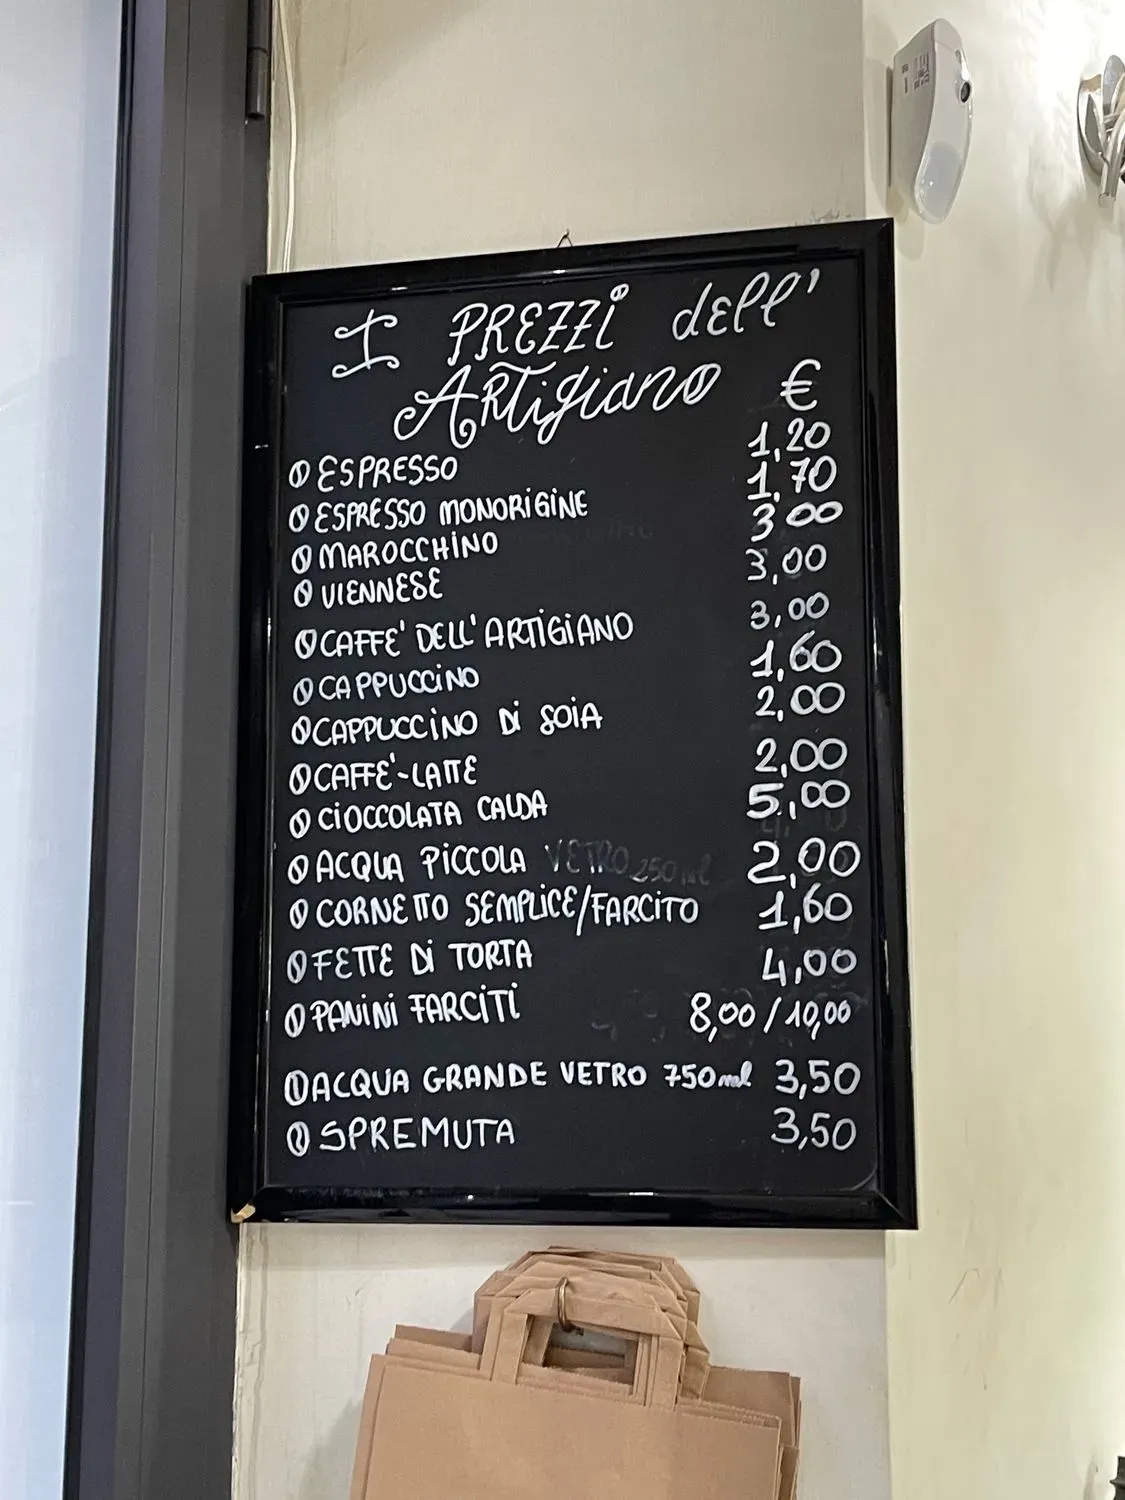 I PREZZI dell'
ARTigiano €
ESPRESSO 1,20
ESPRESSO MONORIGINE 1,70
MAROCCHINO 3,00
VIENNESE 3,00
CAFFE' DELL'ARTIGIANO 3,00
CAPPUCCINO 1,60
CAPPUCCINO DI SOIA 2,00
CAFFE'-LATTE 2,00
CIOCCOLATA CALDA 5,00
ACQUA PICCOLA VETRO 250ml 2,00
CORNETTO SEMPLICE/FARCITO 1,60
FETTE DI TORTA 4,00
PANINI FARCITI 8,00/10,00
ACQUA GRANDE VETRO 750ml 3,50
SPREMUTA 3,50